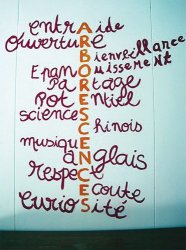 entrAide
OuveRture
Bienveillance
EpanOuissement
PaRtage
PotEntiel
scienceS
Chinois
musiquE
aNglais
respeCt
Ecoute
curioSité